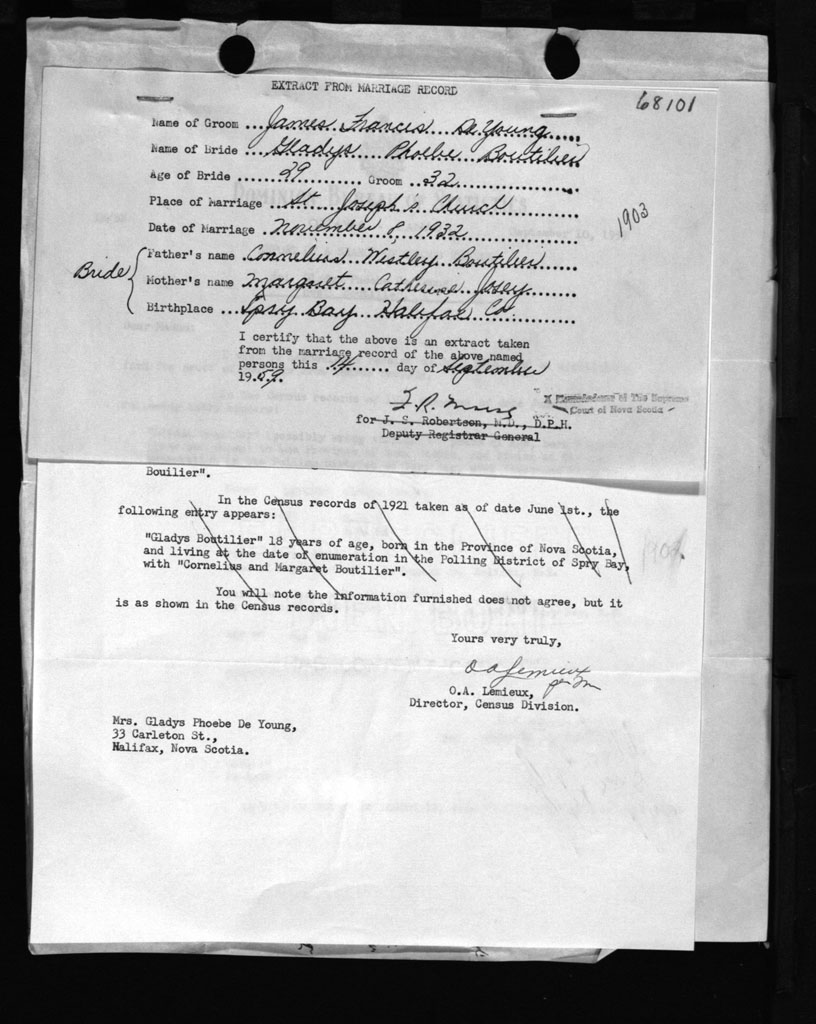 EXTRACT FROM MARRIAGE RECORD
68101
Name of Groom ...James Francis De Young.....
Name of Bride ..Gladys Phoebe Boutilier
Age of Bride .....29........... Groom ..32..............
Place of Marriage ..St Joseph's Church..........
1903
Date of Marriage .November 8, 1932...............
Bride
Father's name Cornelius Westley Boutilier
Mother's name Margaret Catherine Josey......
Birthplace ..Spry Bay Halifax Co...........
I certify that the above is an extract taken
from the marriage record of the above named
persons this .14...... day of September
19.59.
X Prothonotary of The Supreme
Court of Nova Scotia
for J. S. Robertson, M.D., D.P.H.
Deputy Registrar General
Bouilier".
In the Census records of 1921 taken as of date June 1st., the
following entry appears:
"Gladys Boutilier" 18 years of age, born in the Province of Nova Scotia,
and living at the date of enumeration in the Polling District of Spry Bay,
with "Cornelius and Margaret Boutilier".
You will note the information furnished does not agree, but it
is as shown in the Census records.
Yours very truly,
O A Lemieux
per
O.A. Lemieux,
Director, Census Division.
Mrs. Gladys Phoebe De Young,
33 Carleton St.,
Halifax, Nova Scotia.